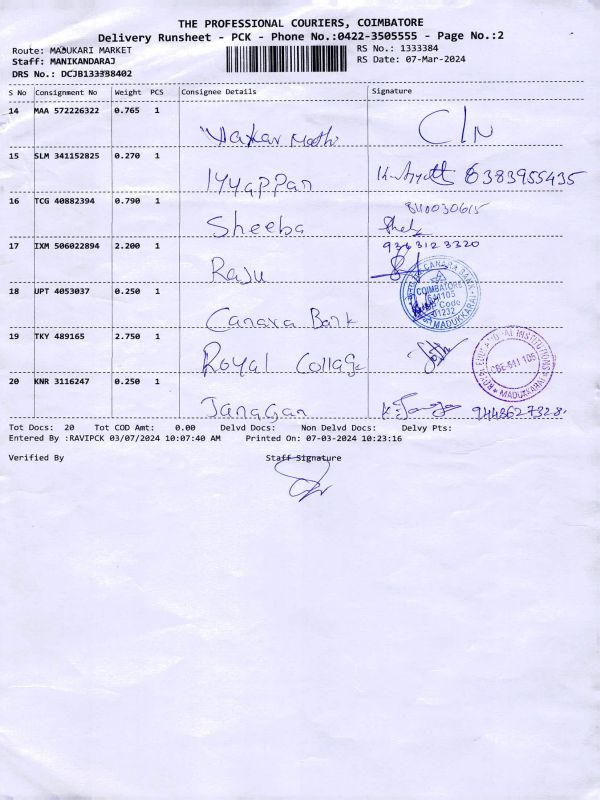 THE PROFESSIONAL COURIERS, COIMBATORE
Delivery Runsheet - PCK - Phone No.:0422-3505555 - Page No.:2
Route: MADUKARI MARKET
RS No.: 1333384
Staff: MANIKANDARAJ
RS Date: 07-Mar-2024
DRS No.: DCJB133338402
S No Consignment No Weight PCS Consignee Details Signature
14 MAA 572226322 0.765 1
C/N
15 SLM 341152825 0.270 1
Iyyappan 6383955435
16 TCG 40882394 0.790 1
8110030615
Sheeba
17 IXM 506022894 2.200 1
9363123320
Raju
18 UPT 4053037 0.250 1
CANARA BANK
COIMBATORE
641105
Code
01232
MADUKKARAI
Canara Bank
19 TKY 489165 2.750 1
Royal Collage
EDUCATIONAL INSTITUTIONS
CBE-641 105
MADUKKARAI
20 KNR 3116247 0.250 1
Janagan
Tot Docs: 20 Tot COD Amt: 0.00 Delvd Docs: Non Delvd Docs: Delvy Pts:
Entered By :RAVIPCK 03/07/2024 10:07:40 AM Printed On: 07-03-2024 10:23:16
Verified By Staff Signature